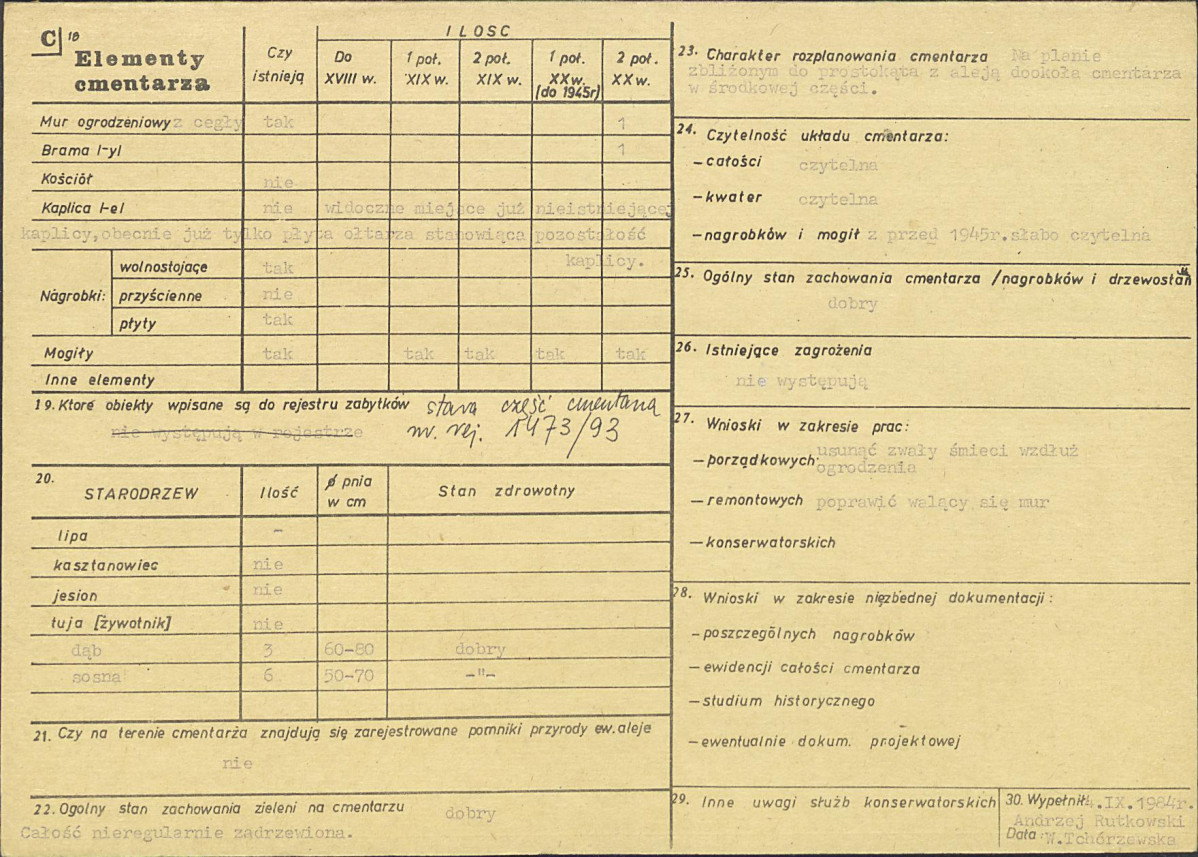 C 18
Elementy cmentarza
Czy istnieją
ILOSC
Do XVIII w.
1 poł. XIX w.
2 poł. XIX w.
1 poł. XX w. (do 1945r)
2 poł. XX w.
Mur ogrodzeniowy z cegły tak 1
Brama I-yl 1
Kościół nie
Kaplica I-el nie widoczne miejsce już nieistniejącej
kaplicy,obecnie już tylko płyta ołtarza stanowiąca pozostałość
kaplicy.
Nagrobki:
wolnostojące tak
przyścienne nie
płyty tak
Mogiły tak tak tak tak tak
Inne elementy
19. Które obiekty wpisane są do rejestru zabytków stara część cmentarna
nie występują w rejestrze nr. rej. 1473/93
20.
STARODRZEW Ilość ø pnia w cm Stan zdrowotny
lipa -
kasztanowiec nie
jesion nie
tuja [żywotnik] nie
dąb 3 60-80 dobry
sosna 6 50-70 -"-
21. Czy na terenie cmentarża znajdują się zarejestrowane pomniki przyrody ew. aleje
nie
22. Ogolny stan zachowania zieleni na cmentarzu dobry
Całość nieregularnie zadrzewiona.
23. Charakter rozplanowania cmentarza Na planie
zbliżonym do prostokąta z aleją dookoła cmentarza
w środkowej części.
24. Czytelność układu cmentarza:
- całości czytelna
- kwater czytelna
- nagrobków i mogił z przed 1945r.słabo czytelna
25. Ogólny stan zachowania cmentarza /nagrobków i drzewostan
dobry
26. Istniejące zagrożenia
nie występują
27. Wnioski w zakresie prac:
- porządkowych usunąć zwały śmieci wzdłuż
ogrodzenia
- remontowych poprawić walący się mur
- konserwatorskich
28. Wnioski w zakresie nięzbednej dokumentacji:
- poszczególnych nagrobków
- ewidencji całości cmentarza
- studium historycznego
- ewentualnie dokum. projektowej
29. Inne uwagi służb konserwatorskich
30. Wypełnił: 4.IX.1984r.
Andrzej Rutkowski
Data: W.Tchórzewska